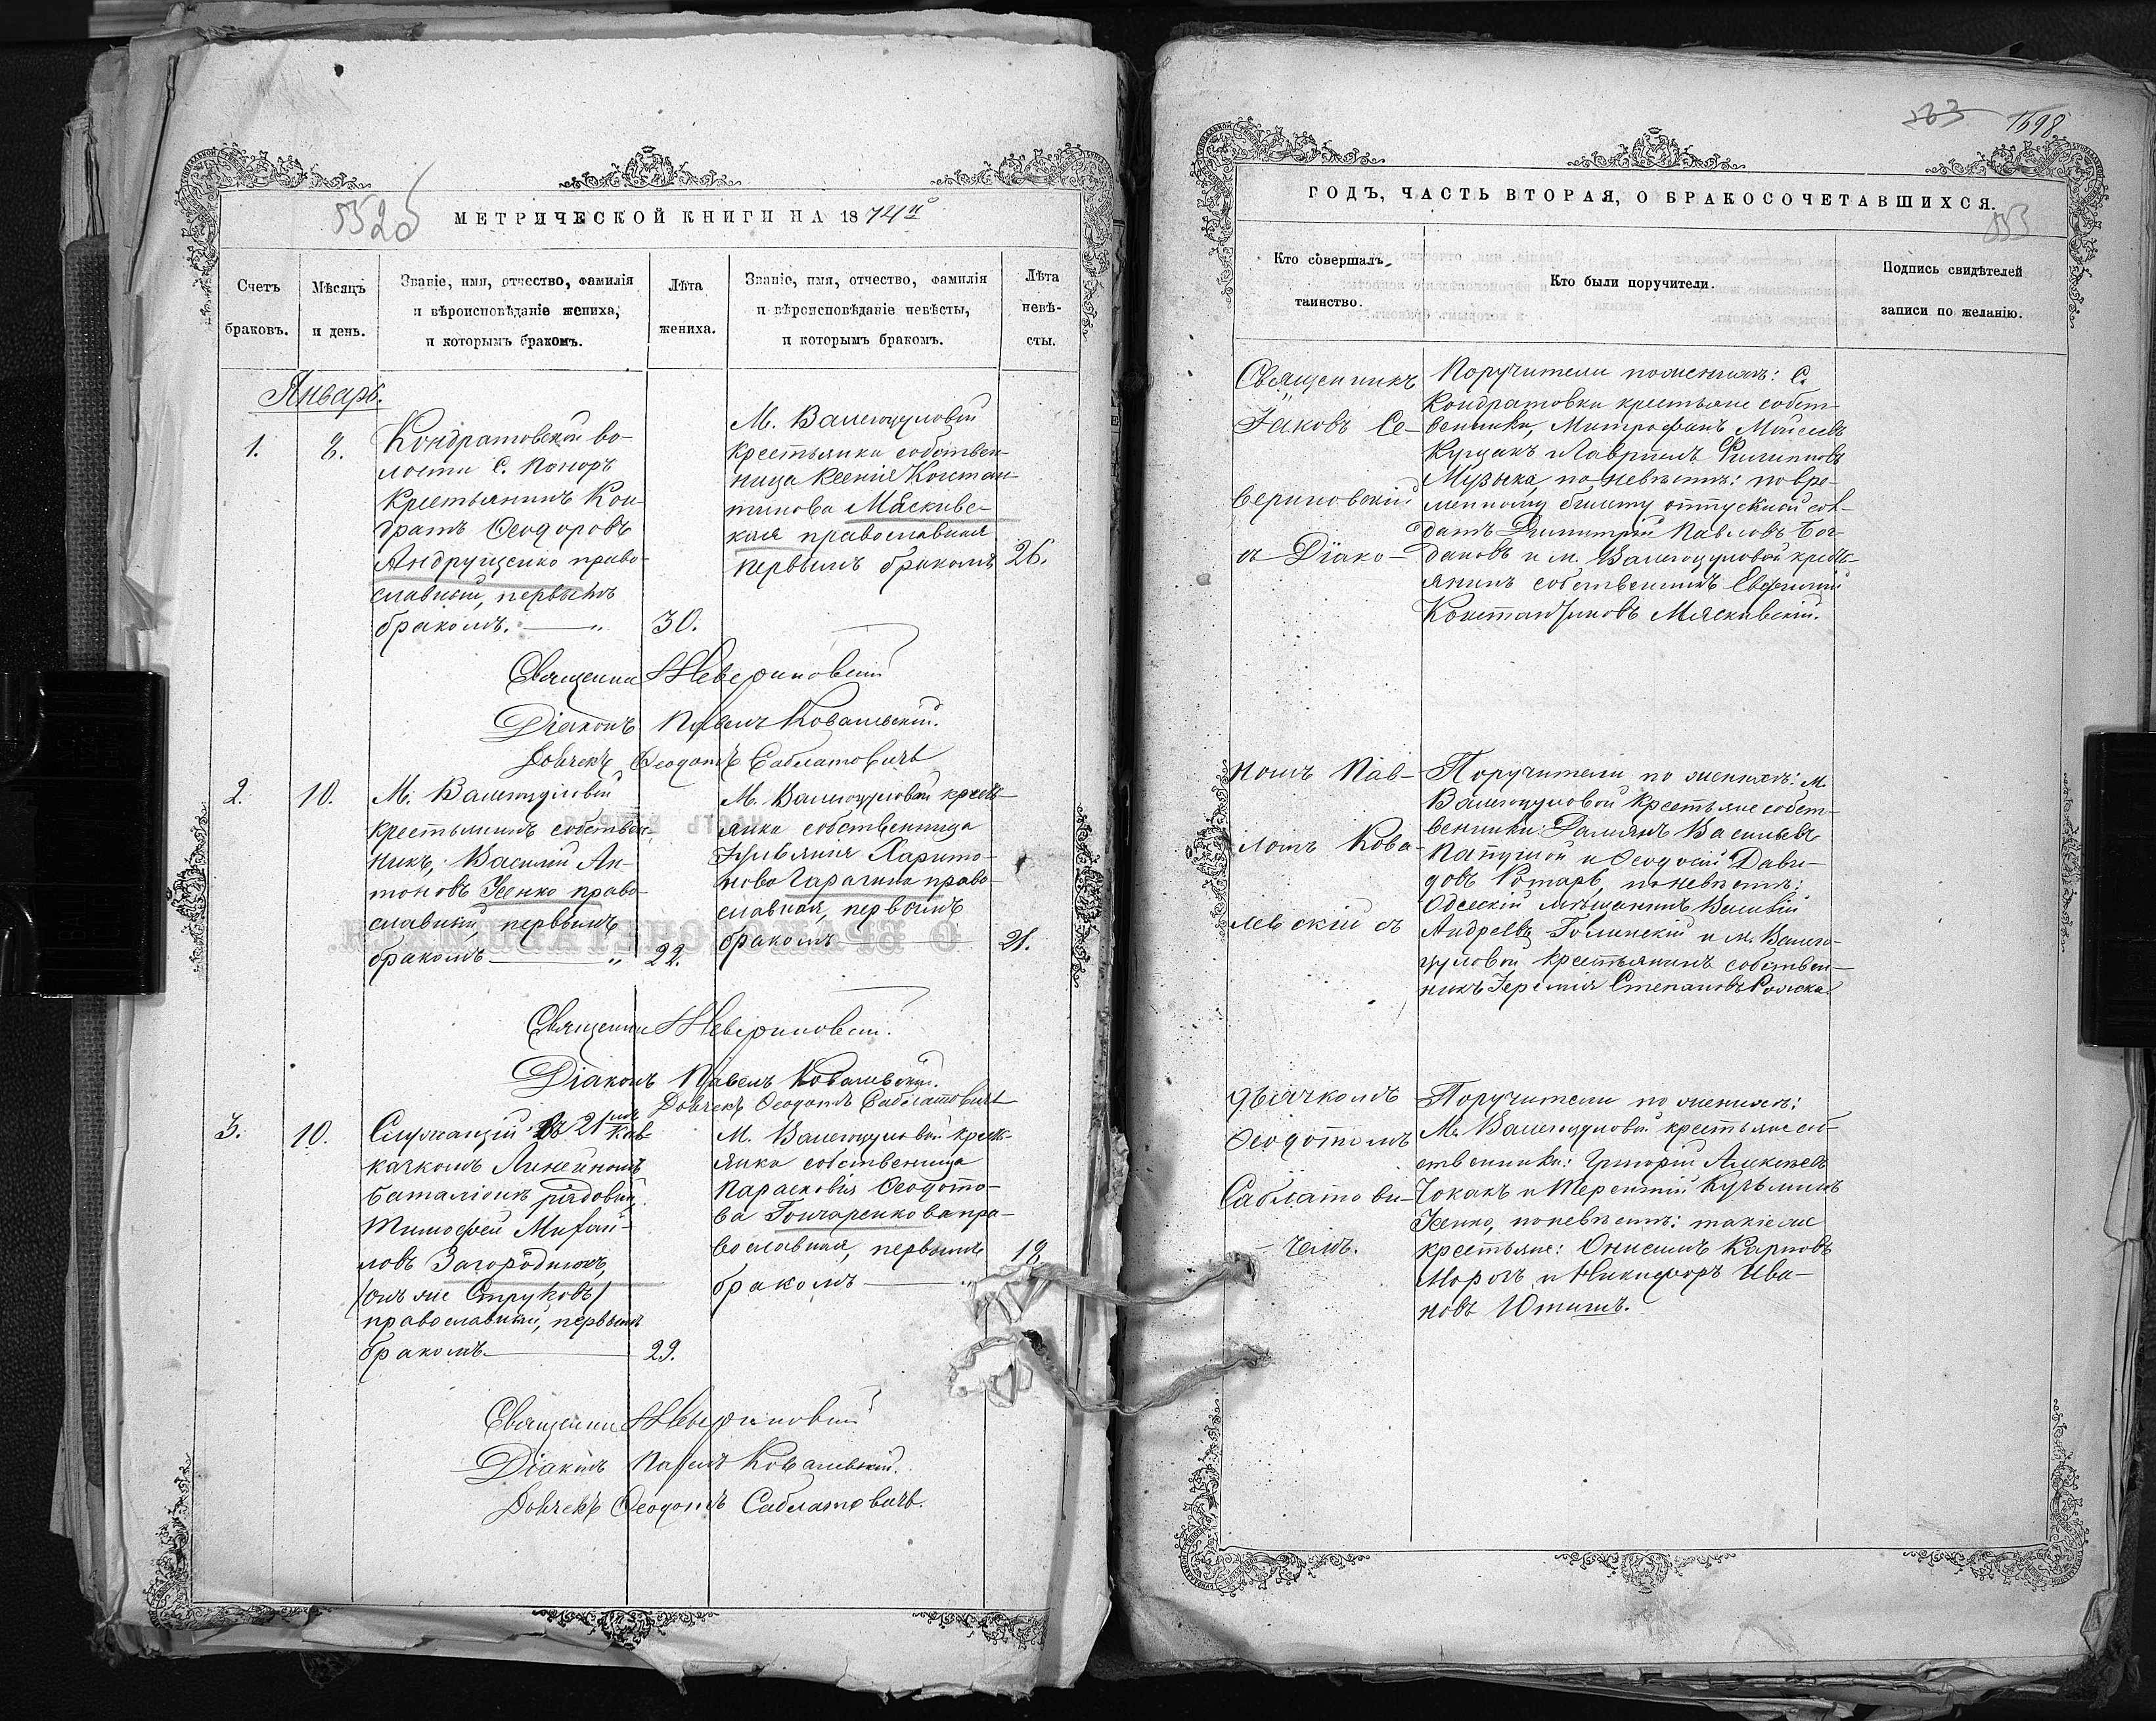 МЕТРИЧЕСКОЙ КНИГИ НА 1874й
Счетъ браковъ.
Мѣсяцъ и день.
Званіе, имя, отчество, фамилія
и вѣроисповѣданіе жениха,
и которымъ бракомъ.
Лѣта жениха.
Званіе, имя, отчество, фамилія
и вѣроисповѣданіе невѣсты,
и которымъ бракомъ.
Лѣта невѣ-
сты.
Январь.
1.
8.
Кондратовской во-
лости С. Поноръ
крестьянинъ Кон-
дратъ Ѳеодоровъ
Андрущенко право-
славный, первымъ
бракомъ. — „
30.
М. Валегоцуловой
крестьянка собствен-
ница Ксенія Констан-
тинова Мясківс-
кая православная
первымъ бракомъ
26.
Священник Неверо́вский
Діаконъ Павелъ Ковальскій.
Дьячекъ Ѳеодотъ Саблатовичъ
2.
10.
М. Валегоцуловой
крестьянинъ собствен-
никъ, Василій Ан-
тоновъ Усенко право-
славный, первымъ
бракомъ — „
22.
М. Валегоцуловой кресть-
янка собственница
Іуліянія Харито-
нова право-
славная, первымъ
бракомъ —
21.
Священник
Діаконъ Павелъ Ковалевскій.
Дьячекъ Ѳеодотъ Саблатовичъ
3.
10.
Служащій въ 21мъ Кав-
казкомъ Линейномъ
баталіонѣ рядовый
Тимофей Михай-
ловъ Загороднюкъ,
(онъ же Струковъ)
православный, первымъ
бракомъ. —
29.
М. Валегоцуловой кресть-
янка собственница
Параскевія Ѳеодото-
ва Гончаренкова пра-
вославная, первымъ
бракомъ — „
18.
Священник
Діаконъ Павелъ Ковалевскій.
Дьячекъ Ѳеодотъ Саблатовичъ.
1698
ГОДЪ, ЧАСТЬ ВТОРАЯ, О БРАКОСОЧЕТАВШИХСЯ.
Кто совершалъ
таинство.
Кто были поручители.
Подпись свидѣтелей
записи по желанію.
Священникъ
Іаковъ Се-
вериновскій
съ Діако-
номъ Пав-
ломъ Кова-
левскій съ
дьячкомъ
Ѳеодотомъ
Саблатови-
чемъ.
Поручители по женихѣ: С.
Кондратовки крестьяне собст-
венники, Митрофанъ Моисеевъ
и Филипповъ
Музыка, по невѣстѣ: по вре-
менному билету отпускной сол-
датъ Димитрій Павловъ Бог-
дановъ и м. Валегоцуловой кресть-
янинъ собственникъ Евфимій
Константиновъ Мясківскій.
Поручители по женихѣ: М.
Валегоцуловой крестьяне собст-
венники: Даміянъ Васильевъ
Папушой и Ѳеодосій Дави-
довъ Ротарь, по невѣстѣ:
Одесскій мѣщанинъ Василій
Андреевъ Голинскій и м. Валего-
цуловой крестьянинъ собствен-
никъ Іеремія Степановъ
Поручители по женихѣ:
М. Валегоцуловой крестьяне соб-
ственники: Григорій Алексѣевъ
Чоканъ и Терентій Кузьминъ
Усенко, по невѣстѣ: такіе же
крестьяне: Онисимъ Карповъ
Морозъ и Никифоръ Ива-
новъ